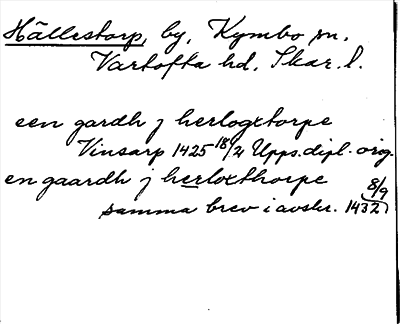 Hällestorp, by, Kymbo sn.
Vartofta hd. Skar. l.
een gardh j herlogxtorpe
Vinsarp 1425 18/2 Upps. dipl. orig.
en gaardh j herloxthorpe
samma brev i avskr. 1432 8/9